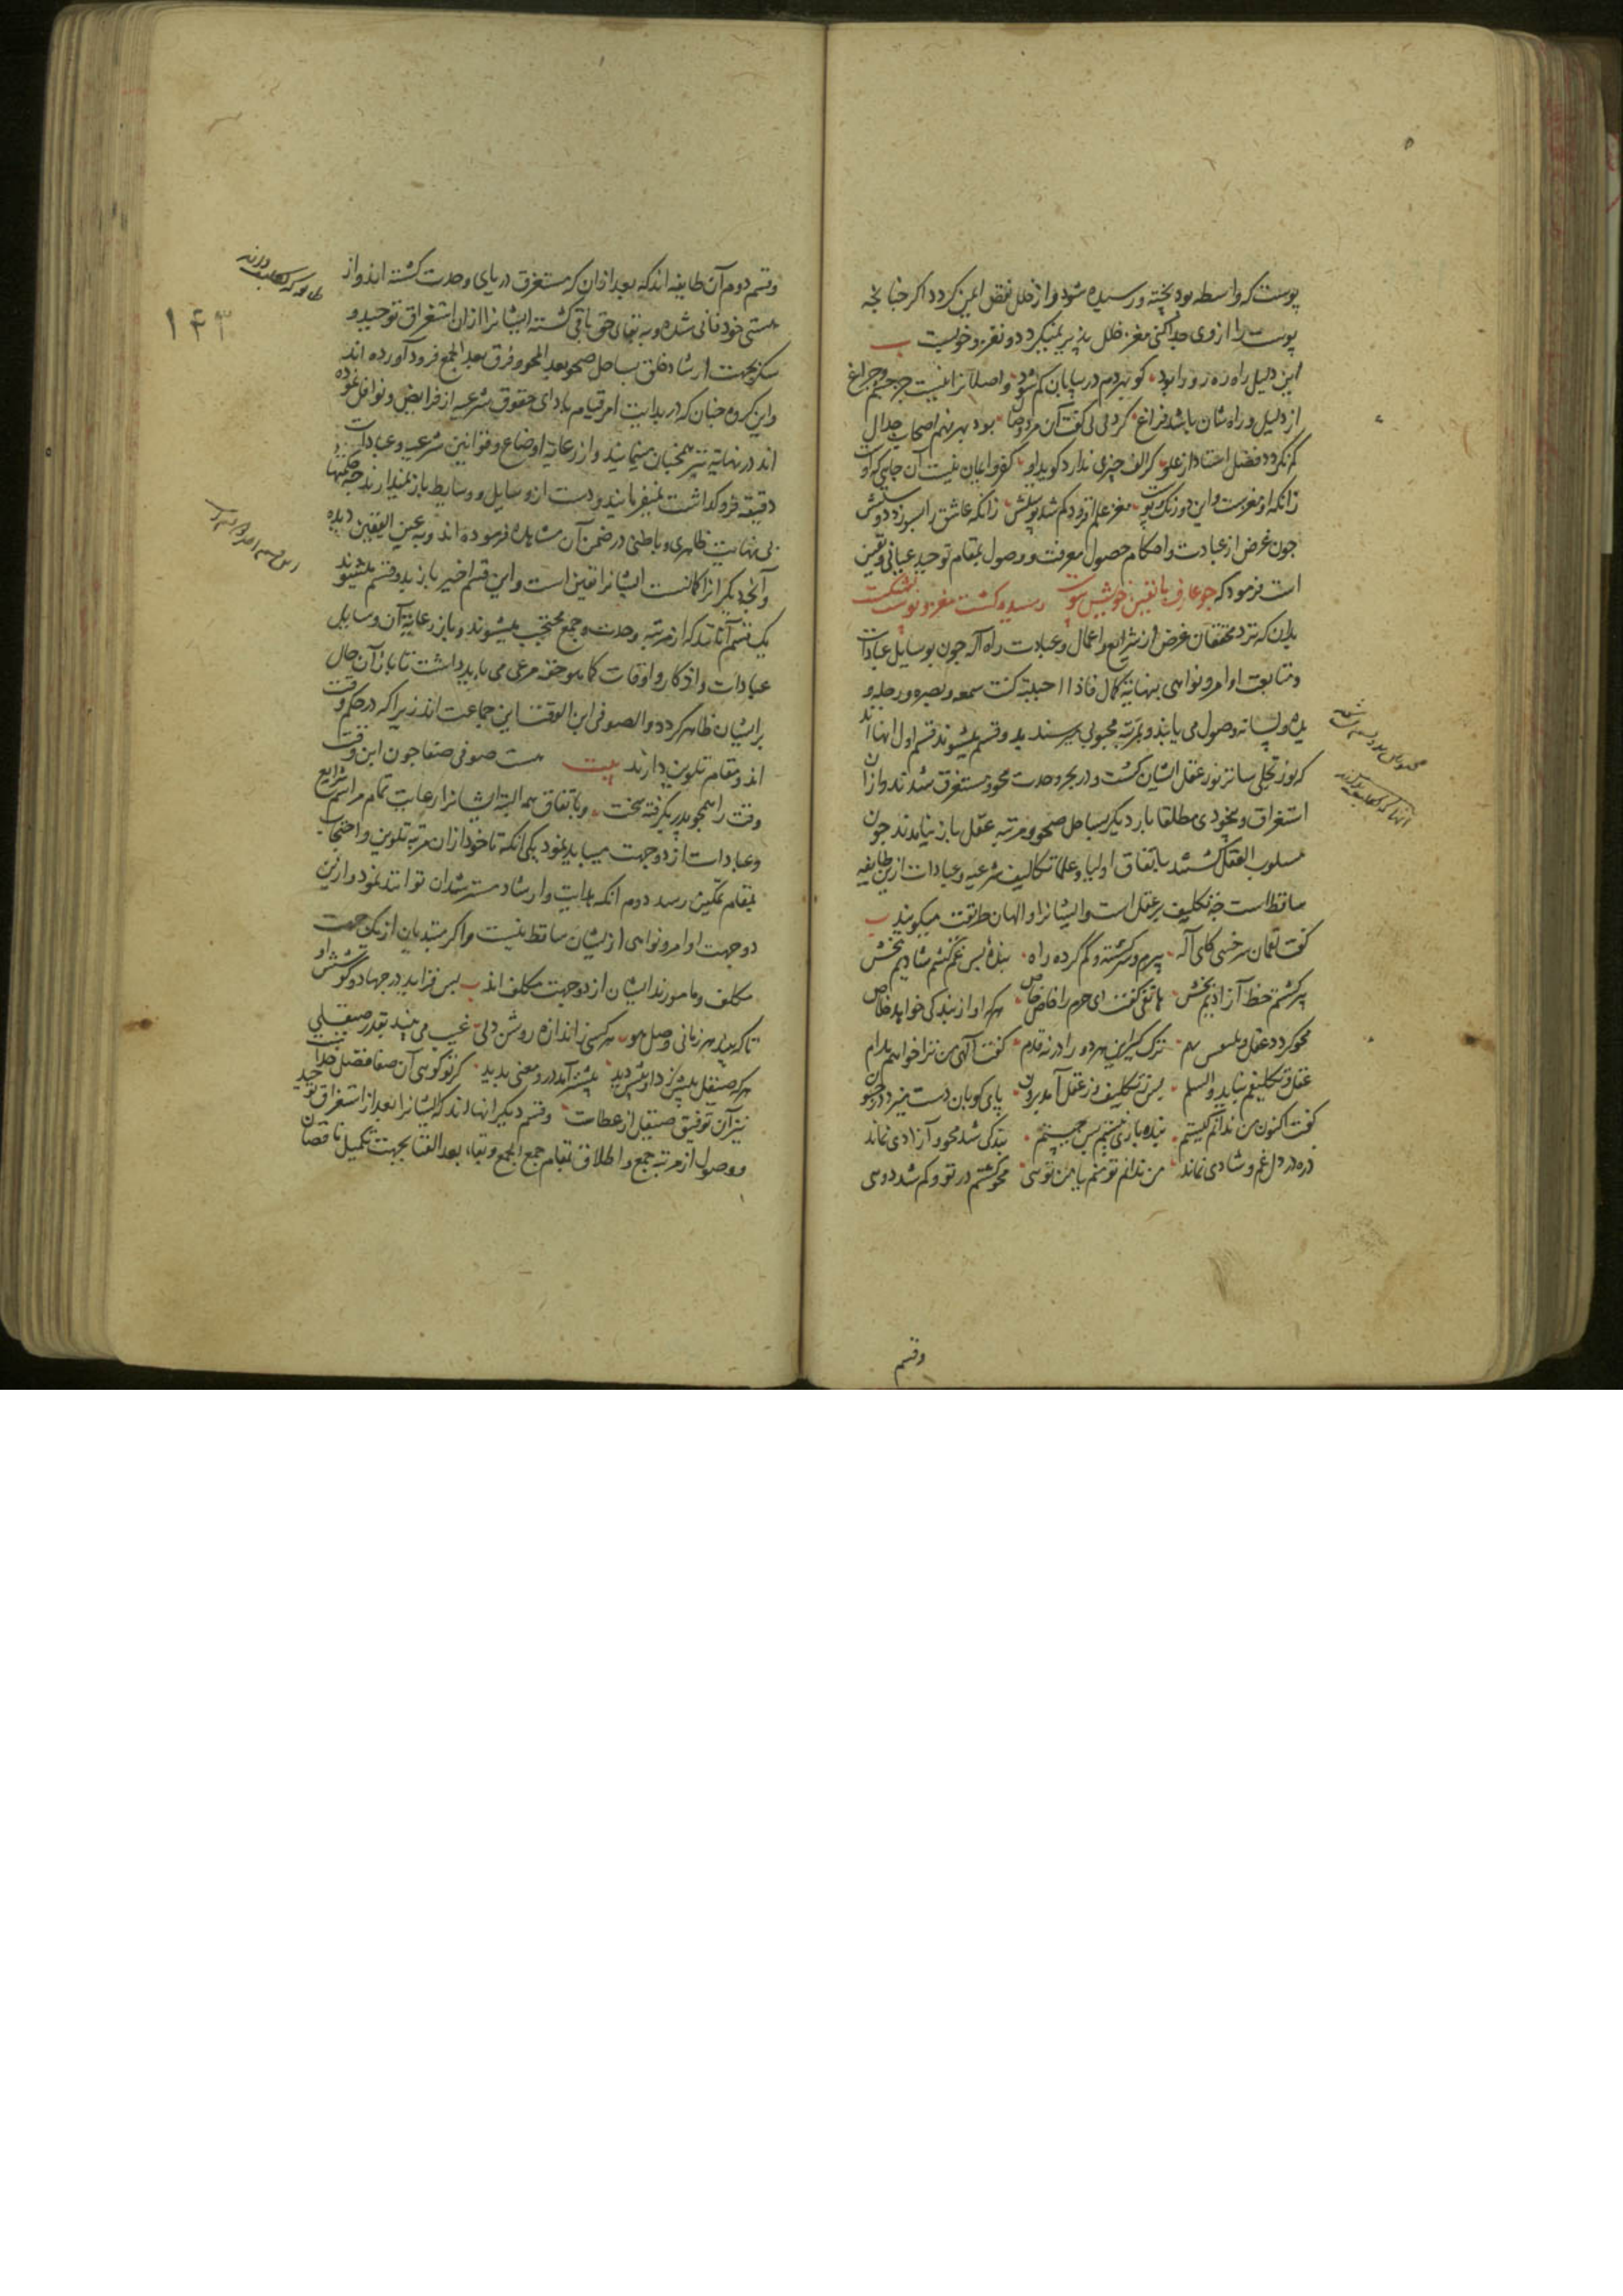 پوست که واسطه بود پخته و رسیده شود و از خلل نقصان ایمن گردد اگر چنانچه
پوست را از وی جدا کنی مغز خلل پذیر نمیگردد و نغز و خوبست ب
این دلیل راه ره رو را بود کو بهر دم در بیابان گم شود واصلانرا نیست جز چشم و چراغ
از دلیل و راه شان باشد فراغ گر دلیلی گفت آن مرد وصال بود بهر فهم اصحاب جدال
کم نگردد فضل استاد از علو گر الف چیزی ندارد گوید او کفر و ایمان نیست آن جایی که اوست
زانکه او مغزست و این دو رنگ و پوست
چون غرض از عبادت و احکام حصول معرفت و وصول بمقام توحید عیانی و یقین
است فرمود که چو عارف با یقین خویش پیوست رسیده گشت مغز و پوست بشکست
بدان که نزد محققان غرض از شرایع و اعمال و عبادت راه اله چون بوسایل عبادات
و متابعت اوامر و نواهی بنهایة کمال فاذا احببته کنت سمعه و بصره و رجله و
یده و لسانه وصول می یابند و بمرتبه محبوبی میرسند بدو قسم میشوند قسم اول انها اند
که نور تجلی ساتر نور عقل ایشان گشت و در بحر وحدت محو و مستغرق شدند و از آن
استغراق و بیخودی مطلقا بار دیگر بساحل صحو و مرتبه عقل باز نیامدند چون
مسلوب العقل گشتند باتفاق اولیا و علما تکالیف شرعیه و عبادات ازین طایفه
ساقط است چه تکلیف بر عقل است و ایشانرا والهان طریقت میگویند ب
گفت لقمان سرخسی کای اله پیرم و سرگشته و گم کرده راه بنده بس غم کشم شادیم بخش
پیر گشتم خط آزادیم بخش هاتفی گفت ای حرم را خاص خاص هر که او از بندگی خواهد خلاص
محو گردد عقل و تکلیفش بهم ترک گیر این هر دو را در نه قدم گفت الهی من ترا خواهم مدام
عقل و تکلیفم نباید والسلم پس ز تکلیف و ز عقل آمد برون پای کوبان دست میزد در جنون
گفت اکنون من ندانم کیستم بنده باری نیستم پس چیستم بندگی شد محو و آزادی نماند
ذره در دل غم و شادی نماند من ندانم تو منم یا من تویی محو گشتم در تو و گم شد دویی
وقسم
وقسم دوم آن طایفه اند که بعد از آن که مستغرق دریای وحدت گشته اند و از
هستی خود فانی شده و به بقای حق باقی گشته ایشانرا از آن استغراق توحید و
سکر بجهت ارشاد خلق بساحل صحو بعد المحو و فرق بعد الجمع فرود آورده اند
و این گروه چنان که در بدایت امر قیام بادای حقوق شرعیه از فرایض و نوافل نموده
اند در نهایة نیز همچنان مینمایند و از رعایة اوضاع و قوانین شرعیه و عبادات
دقیقه فروگذاشت نمیفرمایند و دست از وسایل و وسایط باز نمیدارند چه حکمتها
بی نهایت ظاهری و باطنی در ضمن آن مشاهده فرموده اند و به عین الیقین دیده
و آنچه دیگرانرا گمانست ایشانرا یقین است و این قسم اخیر باز بدو قسم میشوند
یک قسم آنانند که از مرتبه وحدت و جمع محتجب میشوند و باز رعایة آن وسایل
عبادات و اذکار و اوقات کما هو حقه مرعی می باید داشت تا باز آن حال
بر ایشان ظاهر گردد و الصوفی ابن الوقت این جماعت اند زیرا که در حکم وقت
اند و مقام تلوین دارند بیت هست صوفی صفا چون ابن وقت
وقت را همچو پدر بگرفته سخت و باتفاق همه البته ایشانرا رعایت تمام مراسم شرایع
و عبادات از دو جهت میباید نمود یکی آنکه تا خود از آن مرتبه تلوین و احتجاب
بمقام تمکین رسد دوم انکه هدایت و ارشاد مسترشدان توانند نمود و ازین
دو جهت اوامر و نواهی از ایشان ساقط نیست و اگر مبتدیان از یک جهت
مکلف و مامورند ایشان از دو جهت مکلف اند ب پس فزاید در جهاد و کوشش او
هر کسی ز اندازه روشن دلی غیب می بیند بقدر صیقلی
هر که صیقل بیش کرد او بیش دید بیشتر آمد درو معنی پدید گر تو گویی آن صفا فضل خداست
نیز آن توفیق صیقل از عطاست وقسم دیگر انها اند که ایشانرا بعد از استغراق توحید
و وصول از مرتبه جمع و اطلاق بمقام جمع الجمع و بقاء بعد الفنا بجهت تکمیل ناقصان